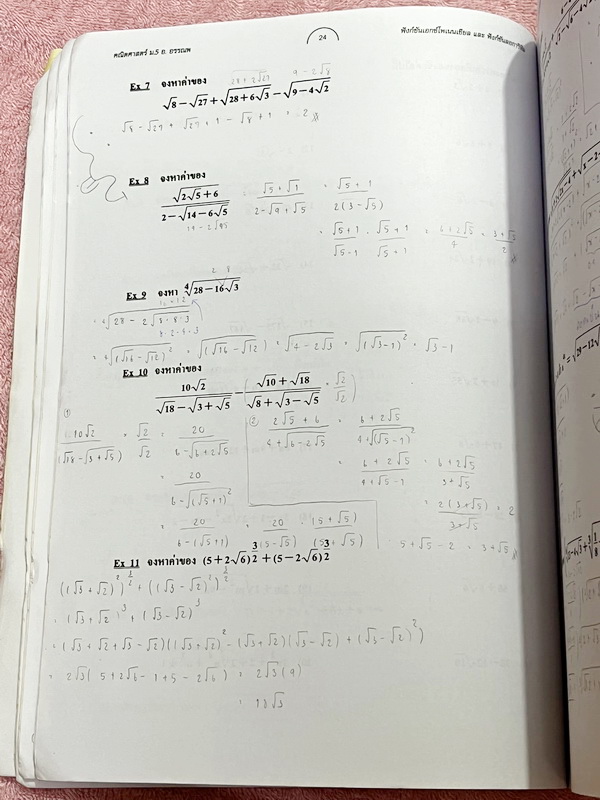 คณิตศาสตร์ ม.5 อ. อรรณพ
24
ฟังก์ชันเอกซ์โพเนนเชียล และ ฟังก์ชันลอการิทึม
Ex 7 จงหาค่าของ
28 + 2√27 9 - 2√8
√8 - √27 + √(28 + 6√3) - √(9 - 4√2)
√8 - √27 + √27 + 1 - √8 + 1 = 2
Ex 8 จงหาค่าของ
√(2√5 + 6) / (2 - √(14 - 6√5)) = (√5 + √1) / (2 - √9 + √5) = (√5 + 1) / (2(3 - √5))
14 - 2√45
= (√5 + 1)/(√5 - 1) · (√5 + 1)/(√5 + 1) = (6 + 2√5)/4 = (3 + √5)/2
Ex 9 จงหา ⁴√(28 - 16√3)
2 8
16 · 12
= ⁴√(28 - 2√(8·8·3))
8·2·4·3
= ⁴√((√16 - √12)²) = √(√16 - √12) = √(4 - 2√3) = √((√3 - 1)²) = √3 - 1
Ex 10 จงหาค่าของ
10√2 / (√18 - √(3 + √5)) - ((√10 + √18) / (√8 + √(3 - √5)) · √2/√2)
①
10√2 / (√18 - √(3 + √5)) = √2/√2 = 20 / (6 - √(6 + 2√5))
= 20 / (6 - √((√5 + 1)²))
= 20 / (6 - (√5 + 1)) 20 / (5 - √5) · (5 + √5)/(5 + √5)
② (2√5 + 6) / (4 + √(6 - 2√5)) = (6 + 2√5) / (4 + √((√5 - 1)²))
= (6 + 2√5) / (4 + √5 - 1) = (6 + 2√5) / (3 + √5)
= 2(3 + √5) / (3 + √5) = 2
5 + √5 - 2 = 3 + √5
Ex 11 จงหาค่าของ (5 + 2√6)^(3/2) + (5 - 2√6)^(3/2)
((√3 + √2)²)^(3/2) + ((√3 - √2)²)^(3/2)
= (√3 + √2)³ + (√3 - √2)³
= (√3 + √2 + √3 - √2)((√3 + √2)² - (√3 + √2)(√3 - √2) + (√3 - √2)²)
= 2√3(5 + 2√6 - 1 + 5 - 2√6) = 2√3(9)
= 18√3